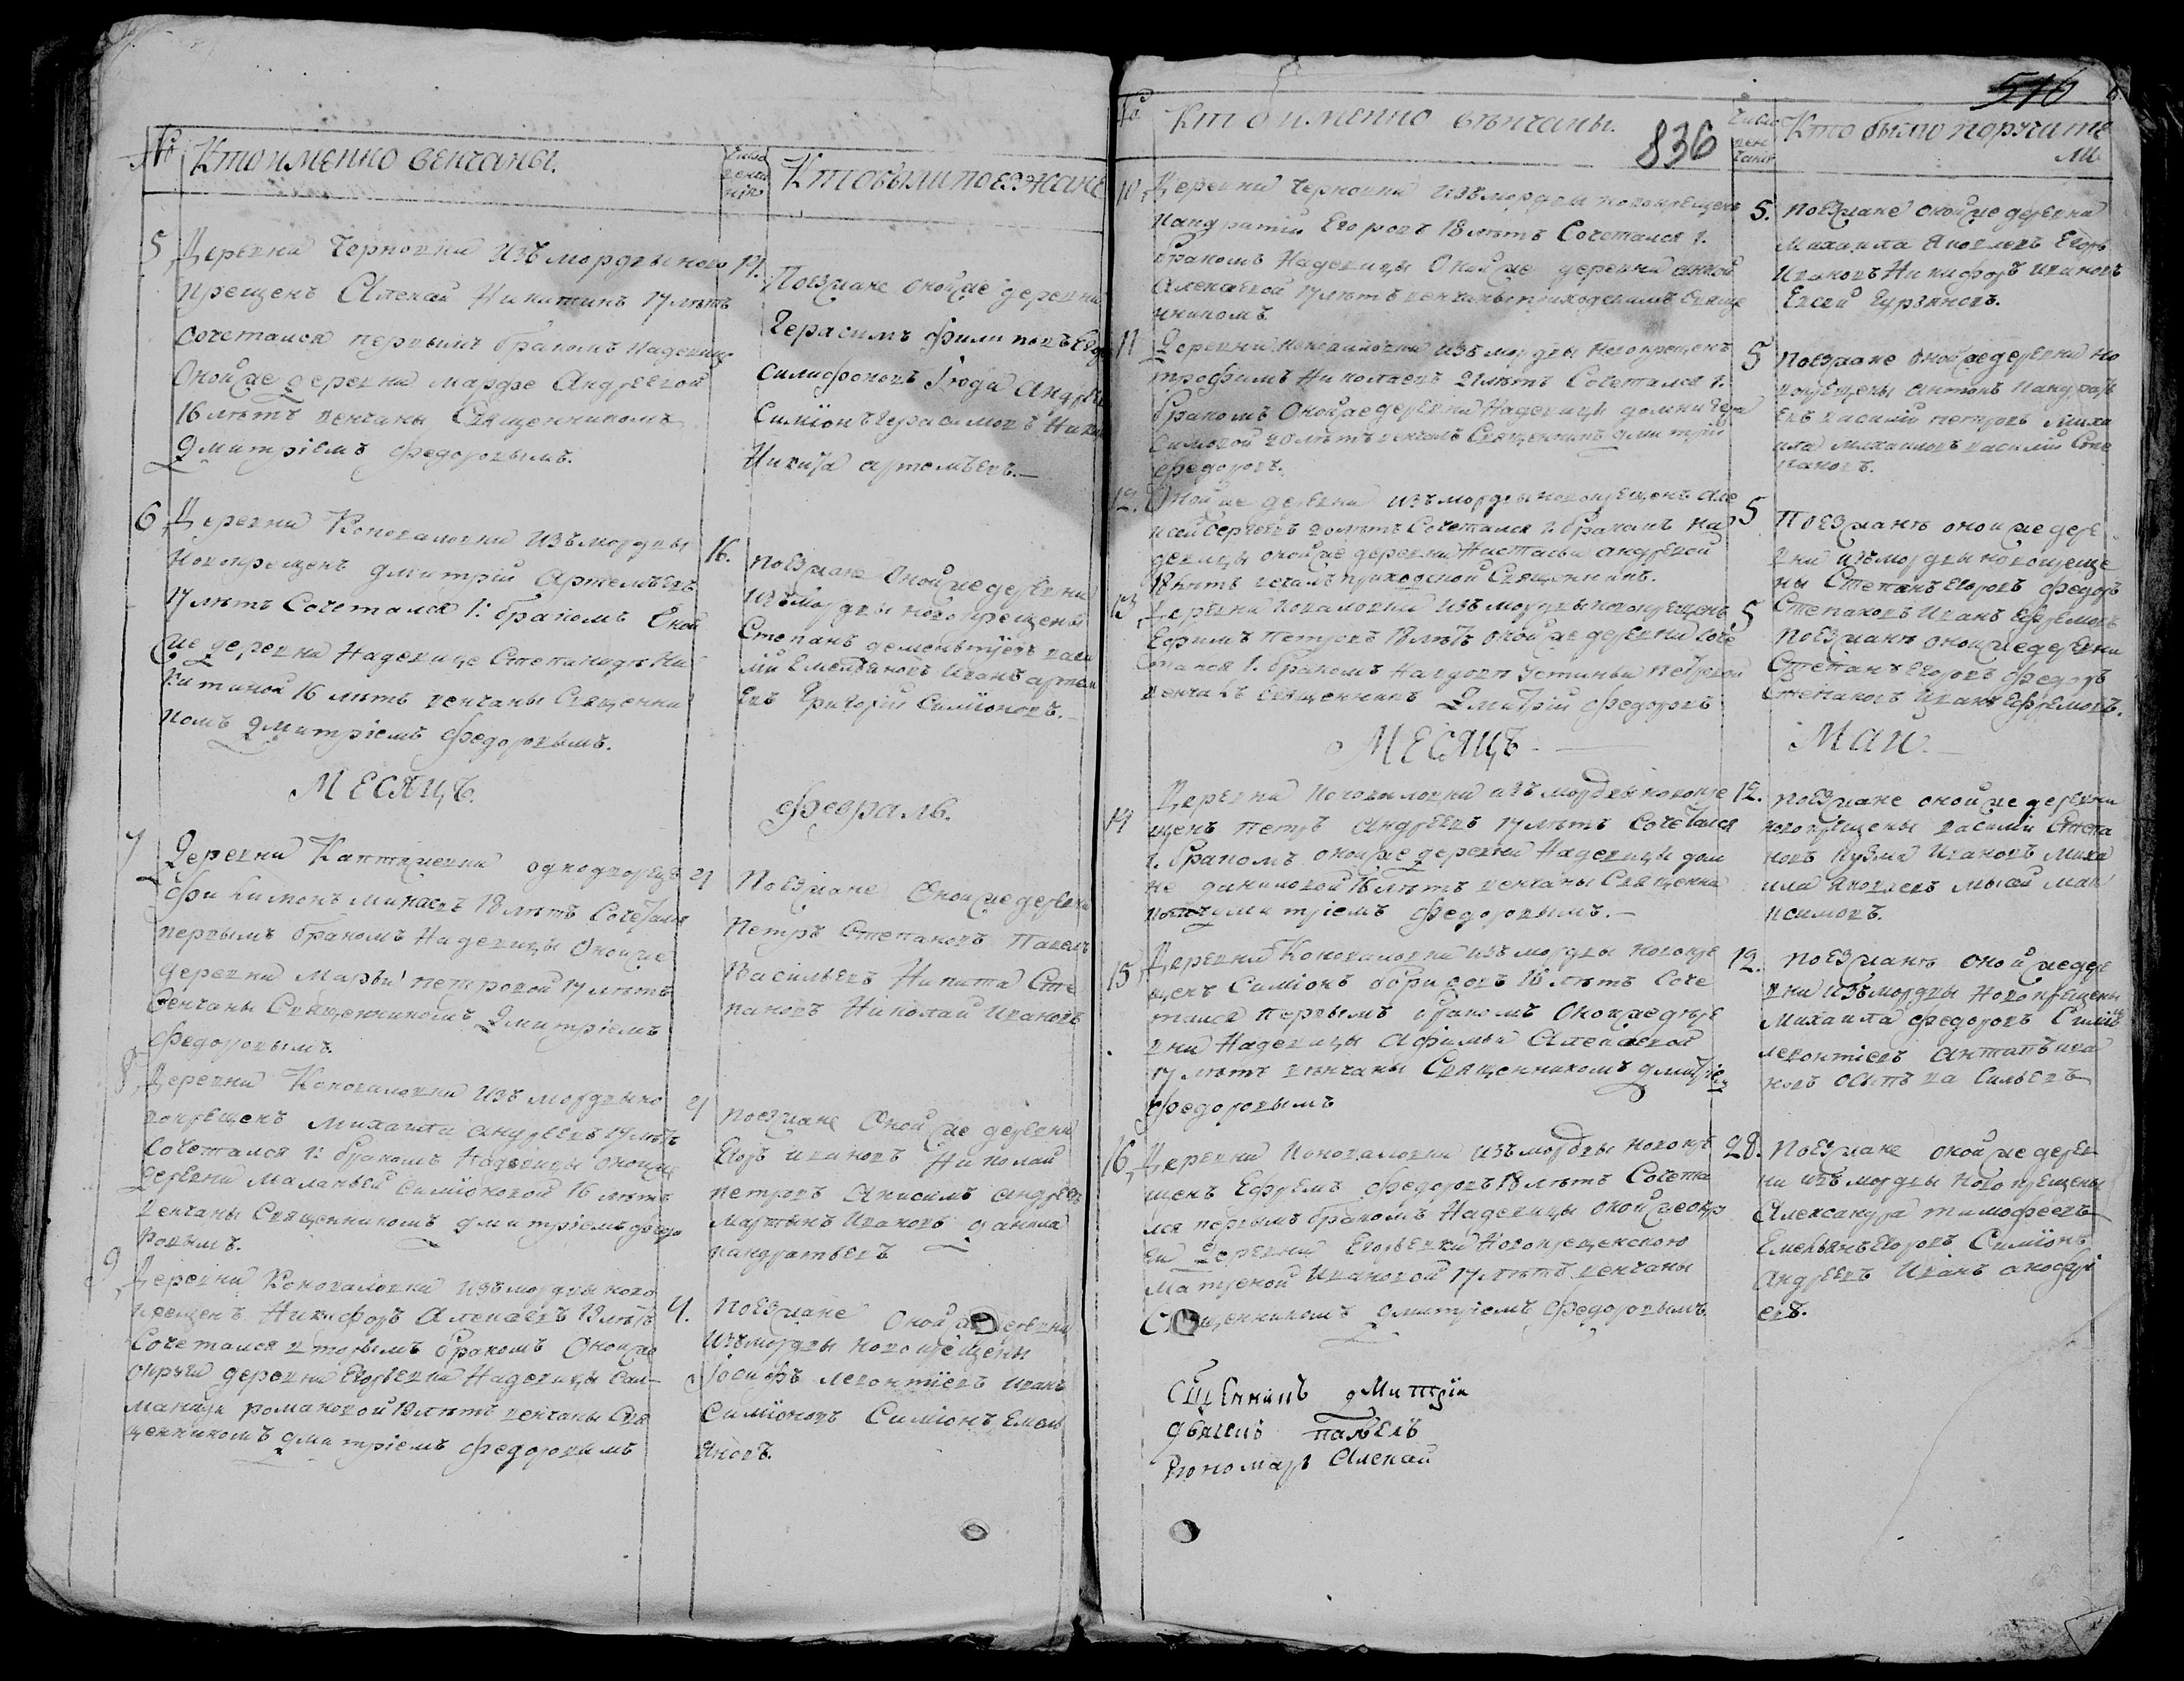 №
Кто именно венчаны.
число венчания
Кто были поезжане
5
Деревни Черновки изъ мордвы ново
крещенъ Алексѣй Никитинъ 17 лѣтъ
сочетался первымъ бракомъ на девице
Оной же деревни марфе Андреевой
16 лѣтъ венчаны Священникомъ
Дмитріемъ Федоровымъ.
14.
Поезжане оной же деревни
Герасимъ Филиповъ
Силифоновъ Іюда Андрее
Симіонъ Герасимовъ
Никита артемьевъ.
6
Деревни Коноваловки изъ мордвы
Новокрещенъ Дмитрій Артемьевъ
17 лѣтъ Сочетался 1: бракомъ Оной
же деревни На девице Степаниде Ни
китиной 16 лѣтъ венчаны Священни
комъ Дмитріемъ Федоровымъ.
16.
Поезжане Оной же деревни
изъ мордвы новокрещены
Степанъ дементиевъ васи
лій Емельяновъ Иванъ артем
евъ Григорій Симіоновъ.
МЕСЯЦЪ.
Февраль.
7
Деревни однодворецъ
Филимонъ минаевъ 18 лѣтъ Сочетался
первымъ бракомъ На девицы Оной же
деревни Марьи петровой 17 лѣтъ
Венчаны Священникомъ Дмитріемъ
Федоровымъ.
Поезжане Оной же деревни
Петръ Степановъ Павелъ
Васильевъ Никита Сте
пановъ Николай Ивановъ
8
Деревни Коноваловки изъ мордвы но
вокрещенъ Михаила андреевъ 17 лѣтъ
Сочетался 1: бракомъ На девицы оной же
деревни Маланьей Симіоновой 16 лѣтъ
Венчаны Священникомъ дмитріемъ федо
ровымъ.
поезжане Оной же деревни
Егоръ ивановъ Николай
петровъ Анисимъ андреевъ
мартынъ Ивановъ данила
кандратьевъ
9
Деревни Коноваловки изъ мордвы ново
крещенъ Никифоръ Алексѣевъ лѣтъ
Сочетался вторымъ бракомъ Оной же
округи деревни Егорьевки На девицы Сол
романовой лѣтъ венчаны Свя
щенникомъ дмитріемъ федоровымъ
4.
поезжане Оной же деревни
изъ мордвы новокрещены
Іосифъ леонтіевъ иванъ
Симіоновъ Симіонъ Емель
яновъ.
№
Кто именно венчаны.
836
516
число венчания
Кто были поручите
ли
10
Деревни Черновки изъ мордвы новокрещенъ
Кандратій Егоровъ 18 лѣтъ Сочетался 1.
бракомъ На девицы Оной же деревни анной
Алексѣевой 17 лѣтъ венчаны приходскимъ Свяще
нникомъ
5.
поезжане оной же деревни
Михаила Яковлевъ Егоръ
Ивановъ Никифоръ ивановъ
Евсей
11
Деревни Коноваловки изъ мордвы новокрещенъ
трофимъ Николаевъ 21 лѣтъ Сочетался 1.
бракомъ Оной же деревни На девицы домни Гера
симовой 20 лѣтъ венчалъ Священникъ дмитрій
Федоровъ.
5
Поезжане Оной же деревни но
вокрещены антонъ Кандрать
евъ василій петровъ миха
ила михаиловъ василій Сте
пановъ.
12.
Оной же деревни изъ мордвы новокрещенъ Але
ксѣй Сергеевъ 20 лѣтъ Сочетался 1. бракомъ на
девицы оной же деревни Настасьи андреевой
18 лѣтъ венчалъ приходской Священникъ.
5
Поезжанъ оной же дере
вни изъ мордвы новокреще
ны Степанъ Егоровъ федоръ
Степановъ Иванъ Ефремовъ
13
Деревни Коноваловки изъ мордвы новокрещенъ
Ефимъ Петровъ 18 лѣтъ оной же деревни Соче
тался 1. бракомъ На вдовѣ Устиньи Петровой
венчалъ Священникъ Дмитрій Федоровъ
5
поезжанъ оной же деревни
Степанъ Егоровъ федоръ
Степановъ иванъ Ефремовъ.
МЕСЯЦЪ
Маи.
14
Деревни Коноваловки изъ мордвы новокре
щенъ Петръ Андреевъ 17 лѣтъ Сочетался
1. бракомъ оной же деревни На девицы дом
не даниловой 16 лѣтъ венчаны Священни
комъ дмитріемъ Федоровымъ.
12.
поезжане оной же деревни
новокрещены василій Степа
новъ Кузма Ивановъ Миха
ила Яковлевъ мысей мак
симовъ.
15
Деревни Коноваловки изъ мордвы новокре
щенъ Симіонъ борисовъ 16 лѣтъ Соче
тался первымъ бракомъ Оной же дере
вни На девицы Афимьи Алексѣевой
17 лѣтъ венчаны Священникомъ дмитріем
Федоровымъ
12.
поезжанъ оной же дере
вни изъ мордвы Новокрещены
Михаила федоровъ Симіонъ
леонтіевъ Антапъ ива
новъ осипъ васильевъ
16
Деревни Коноваловки изъ мордвы новокре
щенъ Ефремъ федоровъ 18 лѣтъ Сочета
лся первымъ бракомъ На девицы оной же окру
ги Деревни Егорьевки Новокрещенскою
матреной Ивановой 17 лѣтъ венчаны
Священникомъ дмитріемъ Федоровымъ
28.
Поезжане оной же дерев
ни изъ мордвы новокрещены
Александра тимофеевъ
Емельянъ Егоровъ Симіонъ
андреевъ Иванъ анофрі
евъ.
Сщенникъ дмитріи
дьячекъ павелъ
Пономарь Алексѣй